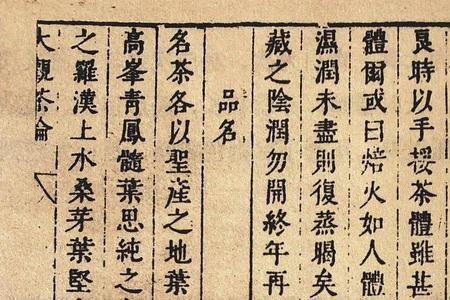 良時以手挼茶體雖甚
體爾或曰焙火如人體
濕潤未盡則復蒸暍矣
藏之陰潤勿開終年再
品名
名茶各以聖産之地葉
高峯青鳳髓葉思純之
之羅漢上水桑芽葉堅
大觀茶論